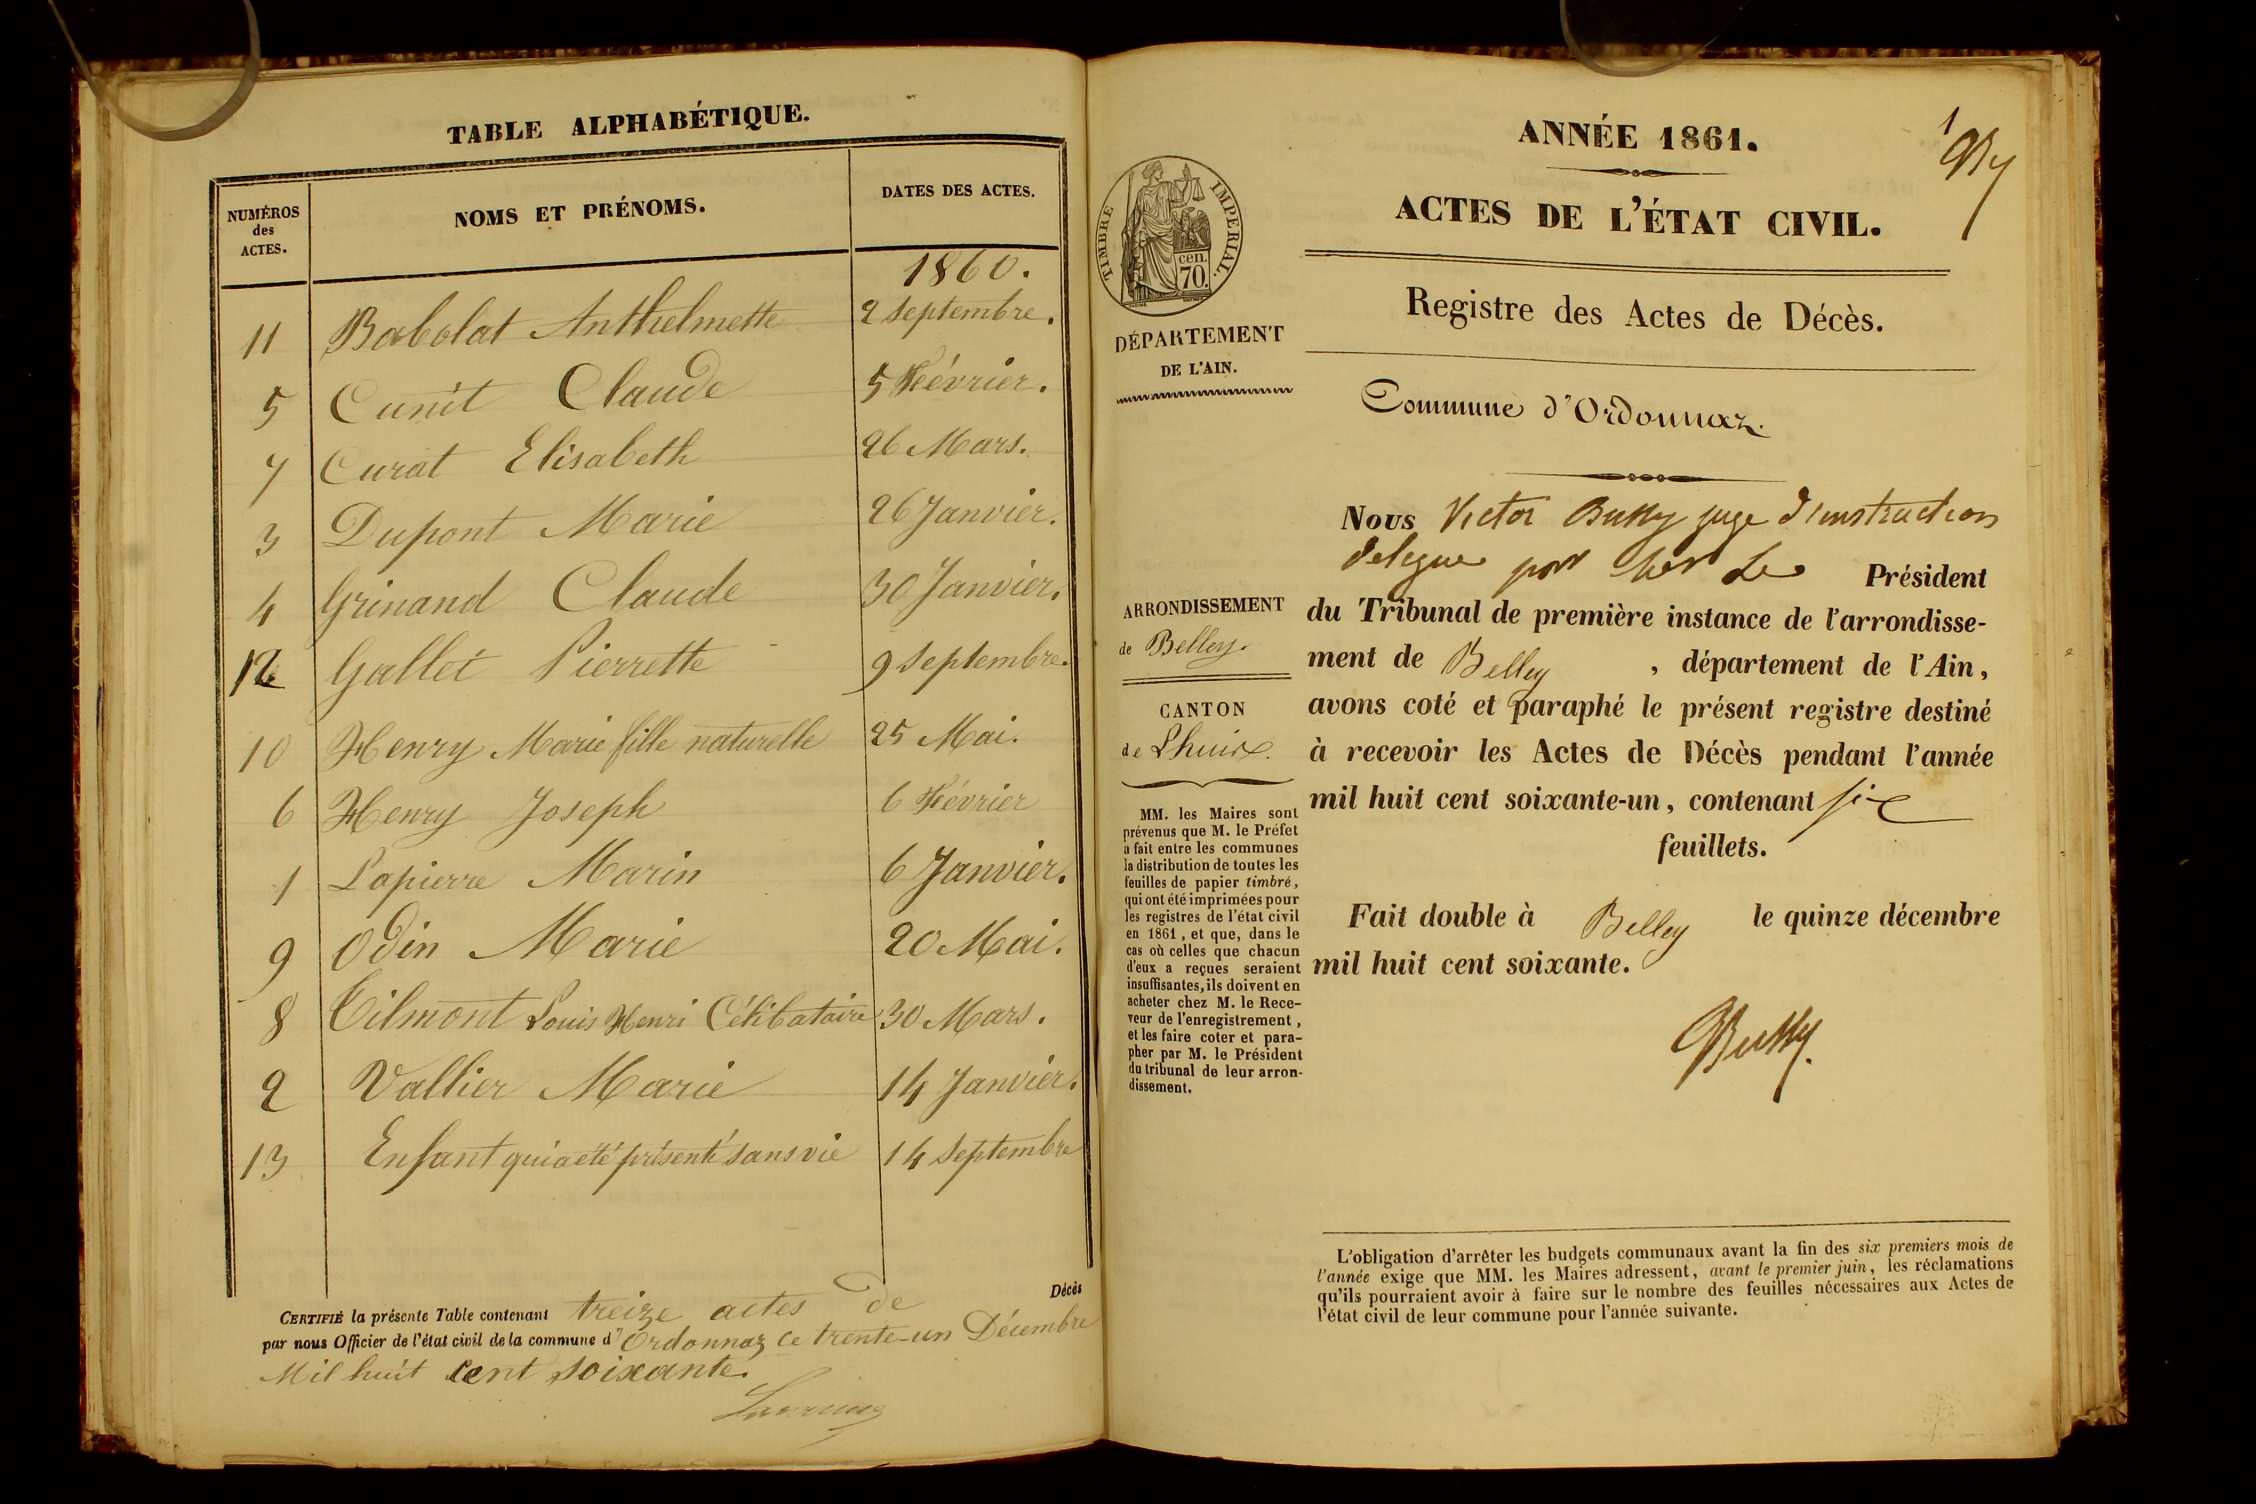 TABLE ALPHABÉTIQUE.
NUMÉROS des ACTES. NOMS ET PRÉNOMS. DATES DES ACTES.
1860.
11 Babolat Anthelmette 2 Septembre.
5 Cunit Claude 5 Février.
7 Curat Elisabeth 26 Mars.
3 Dupont Marie 26 Janvier.
4 Grinand Claude 30 Janvier.
12 Gallet Pierrette 9 Septembre.
10 Henry Marie fille naturelle 25 Mai.
6 Henry Joseph 6 Février
1 Lapierre Marin 6 Janvier.
9 Odin Marie 20 Mai.
8 Tilmont Louis Henri Célibataire 30 Mars.
2 Vallier Marie 14 Janvier.
13 Enfant qui a été présenté sans vie 14 Septembre
CERTIFIÉ la présente Table contenant treize actes de Décès
par nous Officier de l'état civil de la commune d'Ordonnaz ce trente-un Décembre
Mil huit cent soixante.
1
ANNÉE 1861.
ACTES DE L'ÉTAT CIVIL.
Registre des Actes de Décès.
Commune d'Ordonnaz.
TIMBRE IMPERIAL.
cen.
70.
DÉPARTEMENT
DE L'AIN.
ARRONDISSEMENT
de Belley.
CANTON
de Lhuis.
MM. les Maires sont
prévenus que M. le Préfet
a fait entre les communes
la distribution de toutes les
feuilles de papier timbré,
qui ont été imprimées pour
les registres de l'état civil
en 1861, et que, dans le
cas où celles que chacun
d'eux a reçues seraient
insuffisantes, ils doivent en
acheter chez M. le Rece-
veur de l'enregistrement,
et les faire coter et para-
pher par M. le Président
du tribunal de leur arron-
dissement.
Nous Victor juge d'instruction
délégué par Le Président
du Tribunal de première instance de l'arrondisse-
ment de Belley, département de l'Ain,
avons coté et paraphé le présent registre destiné
à recevoir les Actes de Décès pendant l'année
mil huit cent soixante-un, contenant six
feuillets.
Fait double à Belley le quinze décembre
mil huit cent soixante.
L'obligation d'arrêter les budgets communaux avant la fin des six premiers mois de
l'année exige que MM. les Maires adressent, avant le premier juin, les réclamations
qu'ils pourraient avoir à faire sur le nombre des feuilles nécessaires aux Actes de
l'état civil de leur commune pour l'année suivante.